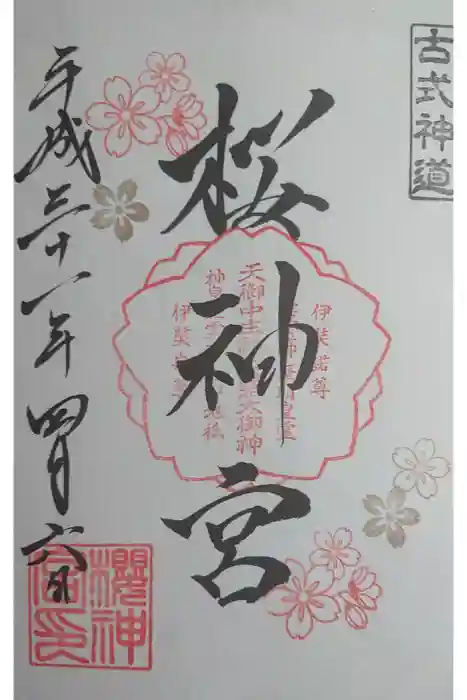 古式神道
桜神宮
伊弉諾尊
天御中主
大御神
平成三十一年四月六日
櫻神
宮印